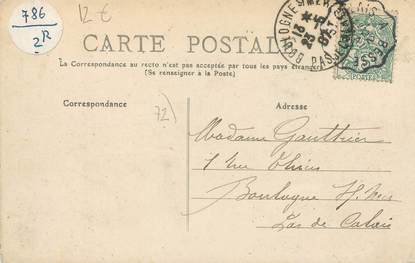 786
2R
12 €
CARTE POSTALE
La Correspondance au recto n'est pas acceptée par tous les pays étrangers
(Se renseigner à la Poste)
Correspondance
Adresse
72)
BOULOGNE S MER
PAS
Madame Gauthier
7 rue Thiers
Boulogne s/ Mer
Pas de Calais